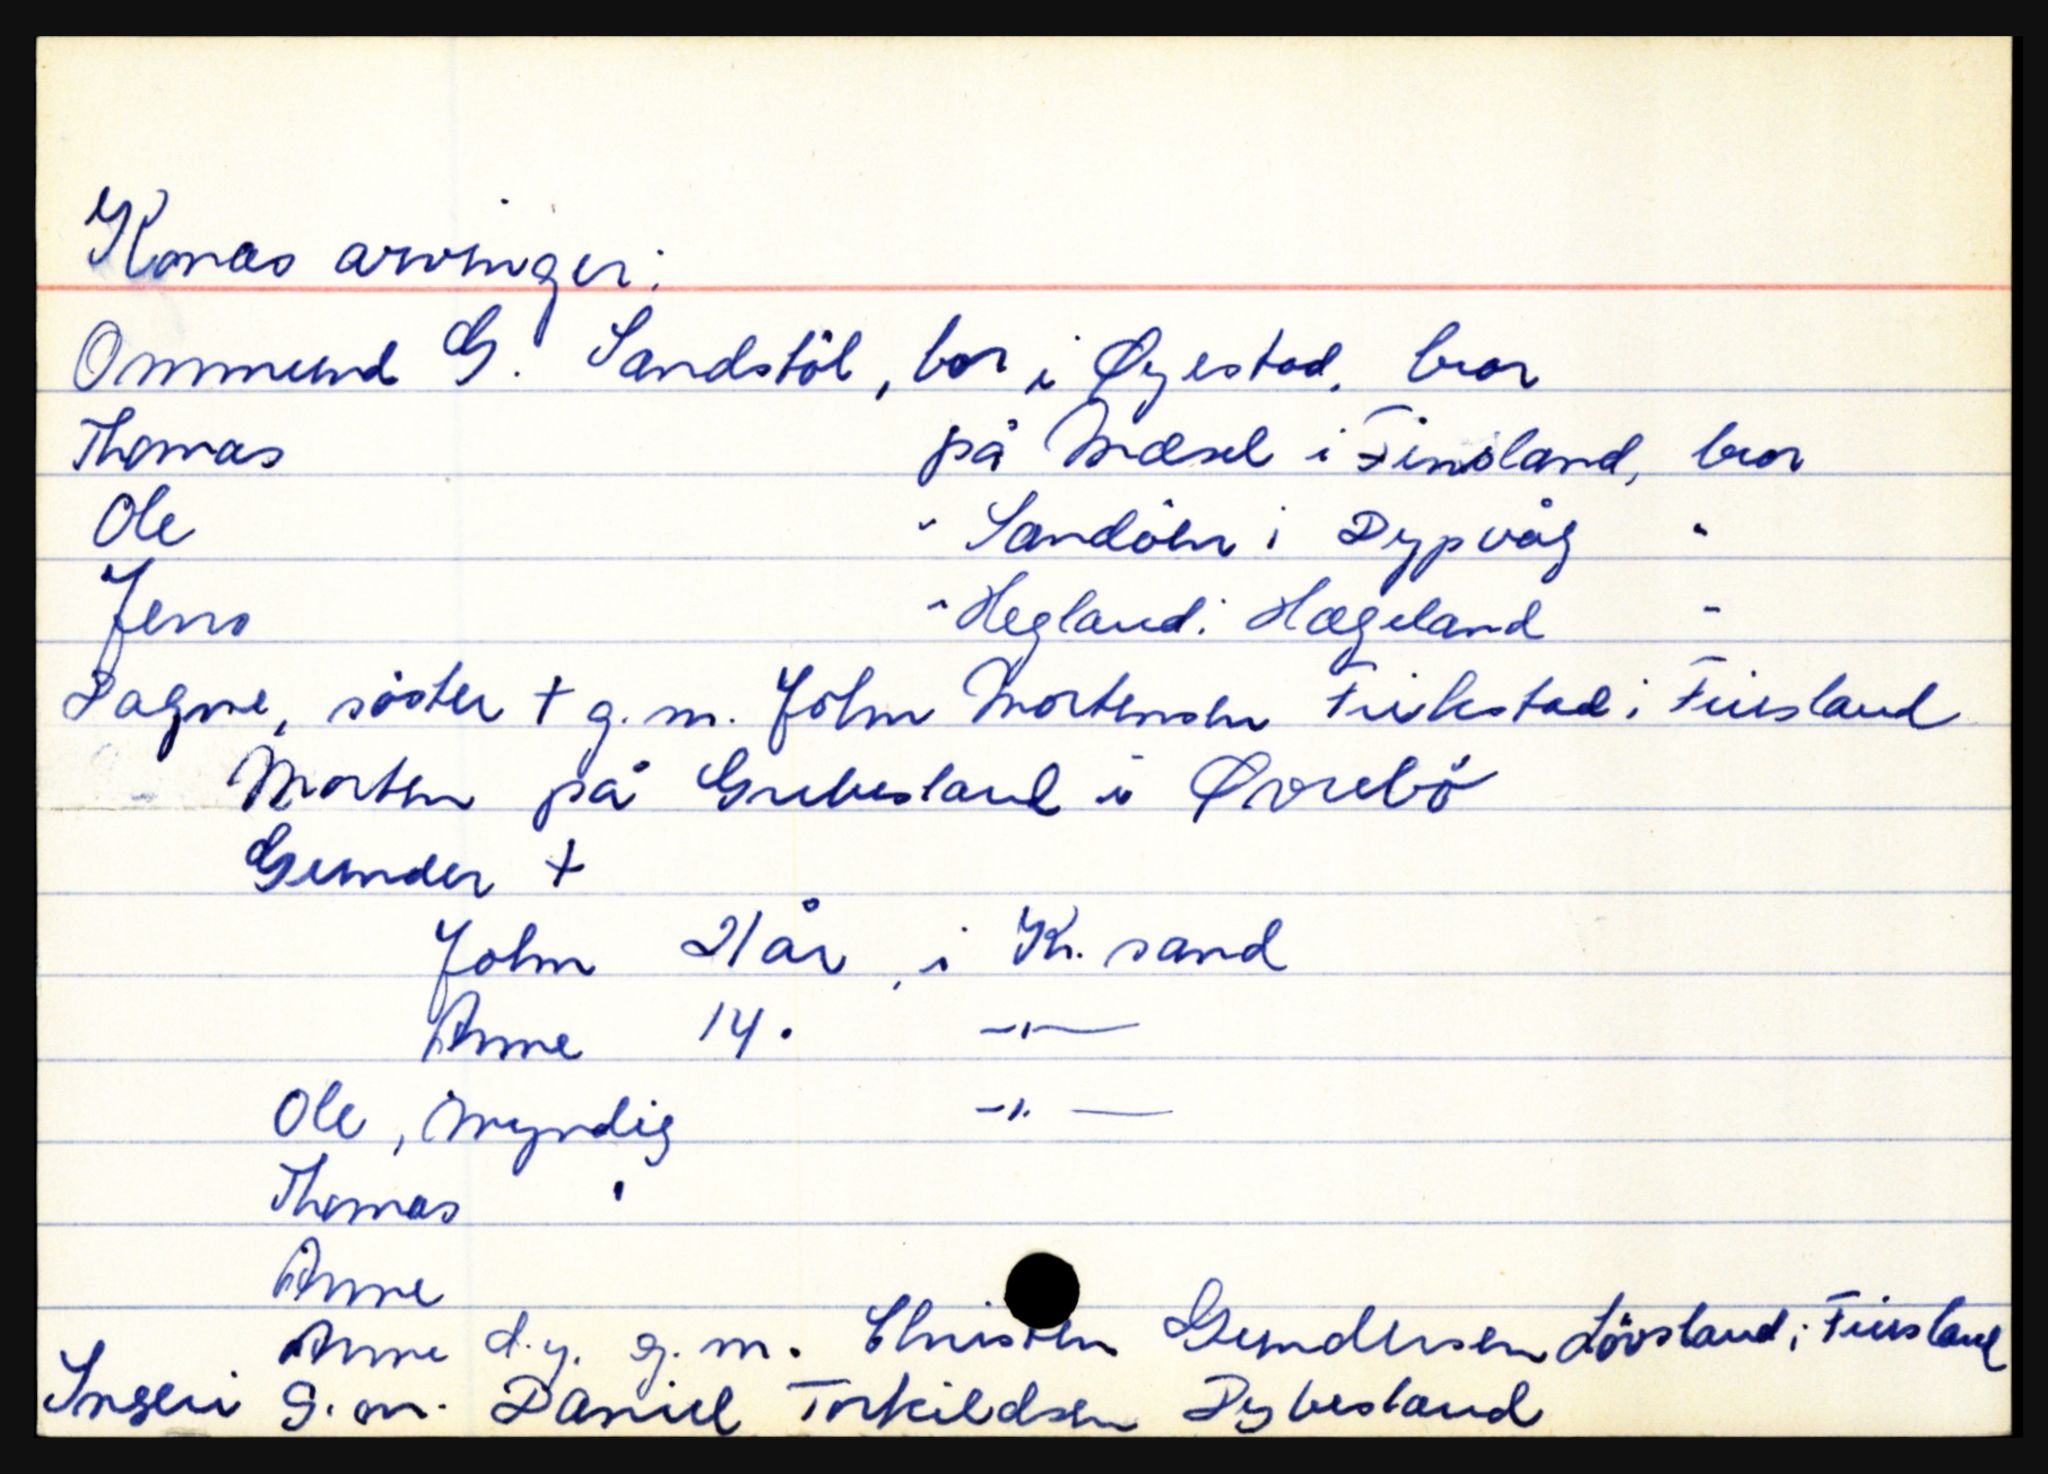 Konas arvinger:
Ommund G. Sandstöl, bor i Øyestad, bror
Thomas på Mæsel i Finsland, bror
Ole " Sandöen i Dypvåg "
Jens " Hegland i Hægeland "
Dagne, söster + g.m. John Mortensen Firkstad i Finsland
Morten på Grubesland i Øvrebö
Gunder +
John 21 år, i Kr. sand
Anne 14 " —"—
Ole, myndig —"—
Thomas "
Anne
Anne d.y. g.m. Christen Gundersen Lövsland i Finsland
Ingeri g.m. Daniel Torkildsen Dybesland